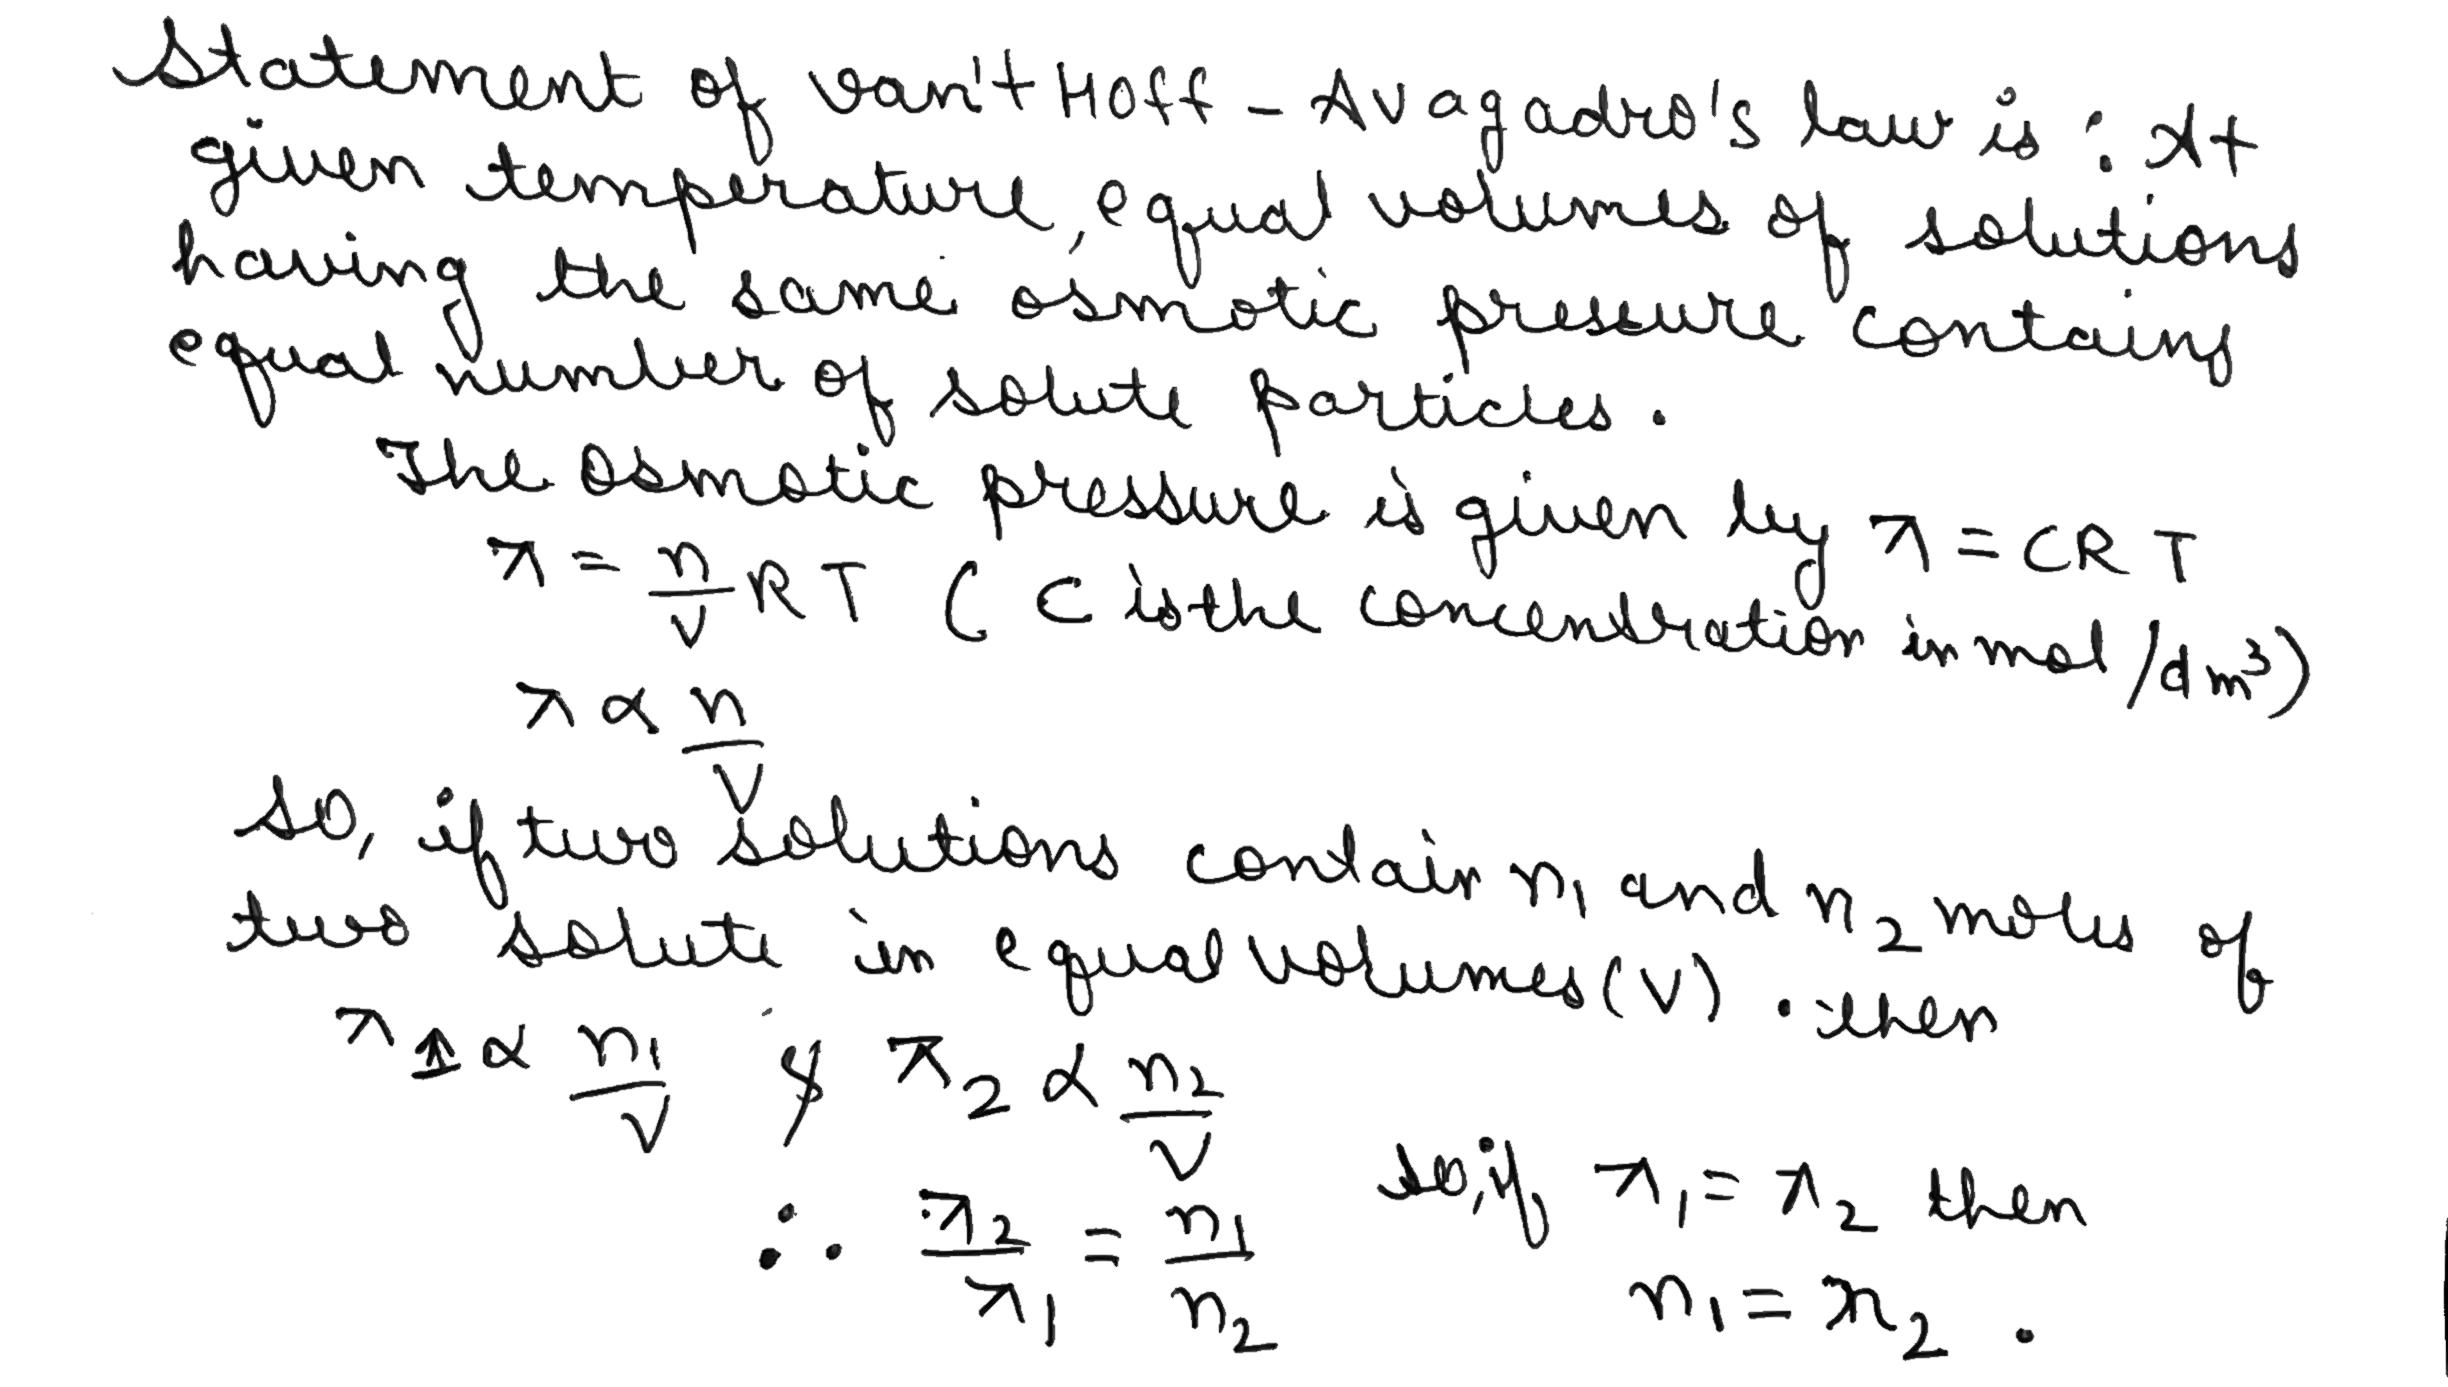 Statement of van't Hoff - Avagadro's law is : At
given temperature, equal volumes of solutions
having the same osmotic pressure contains
equal number of solute particles.
The Osmotic pressure is given by π = CRT
π = n/V RT ( C is the concentration in mol/dm³)
π ∝ n/V
So, if two solutions contain n₁ and n₂ moles of
two solute in equal volumes (V) . then
π₁ ∝ n₁/V & π₂ ∝ n₂/V
∴ π₂/π₁ = n₁/n₂
so, if π₁ = π₂ then
n₁ = n₂ .